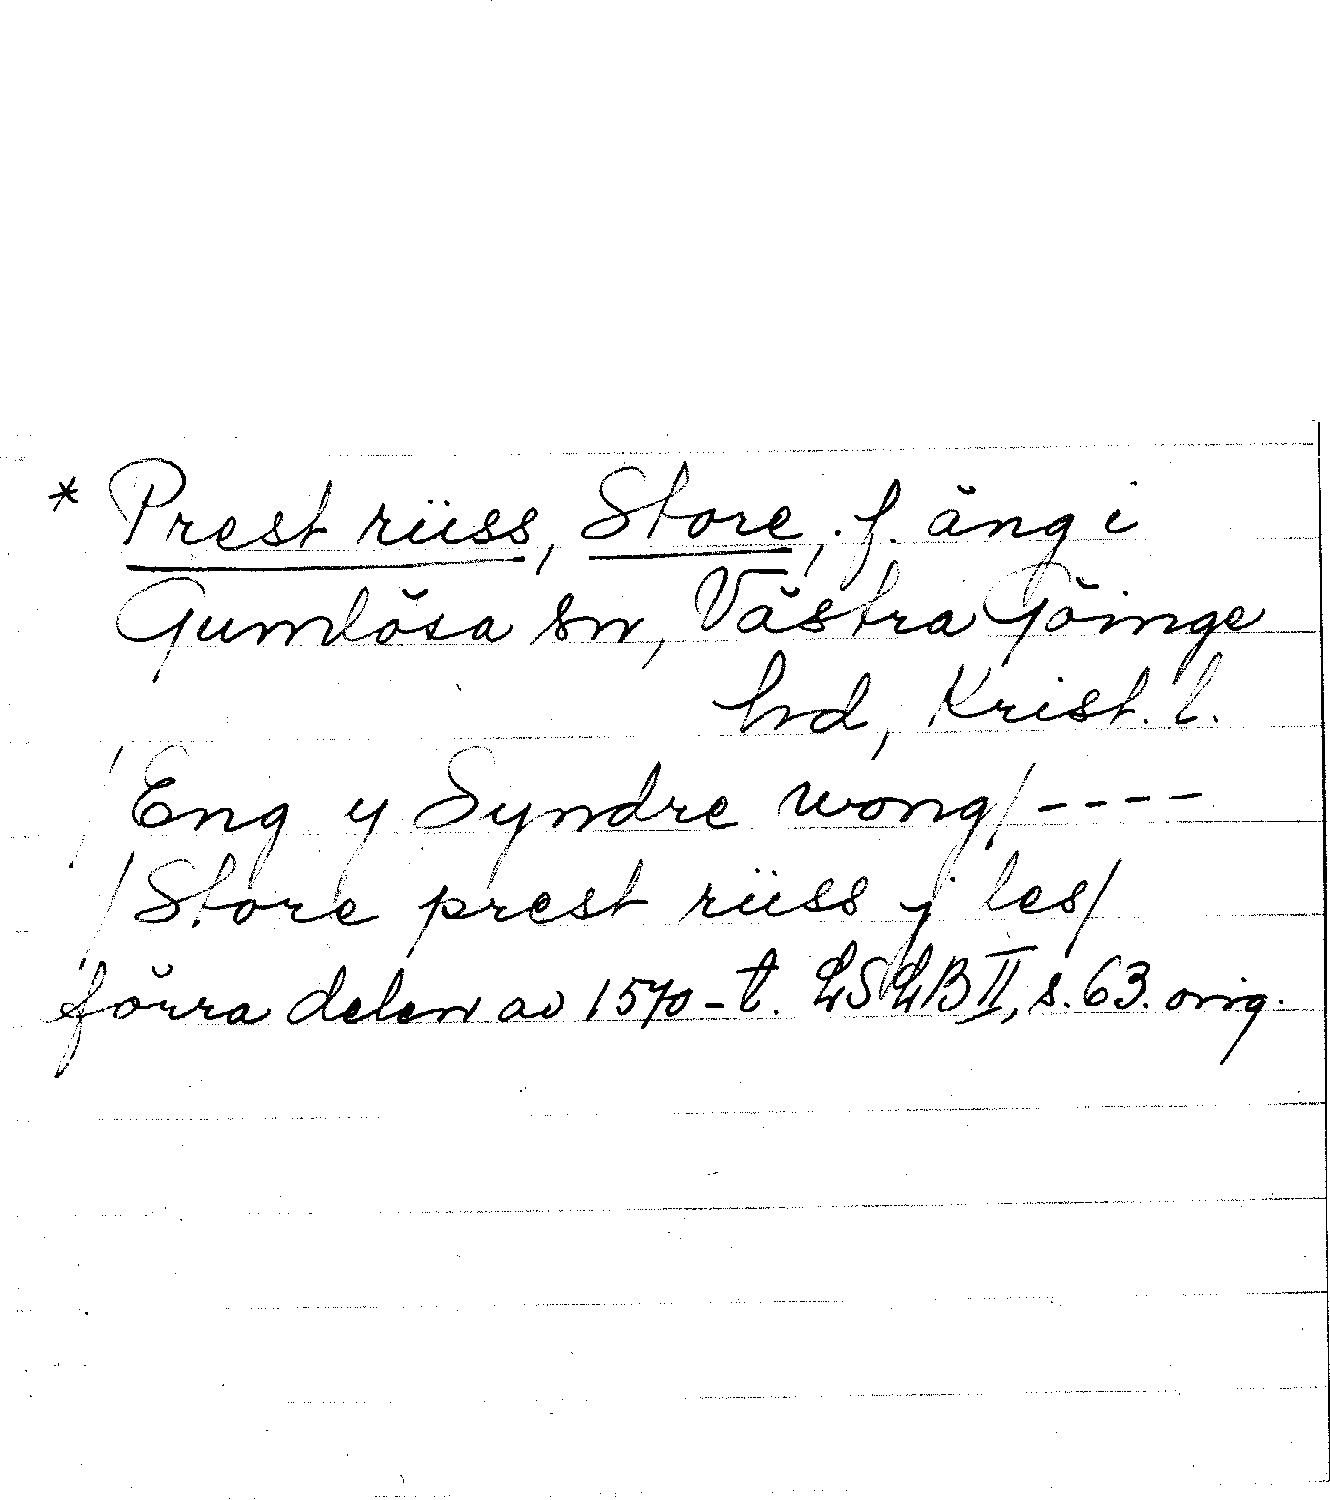 * Prest rüss, Store, f. äng i
Gumlösa sn, Västra Göinge
hrd, Krist. l.
/Eng y Syndre wong/ ----
/Store prest rüss j les/
förra delen av 1570-t. LSLB II, s. 63. orig.